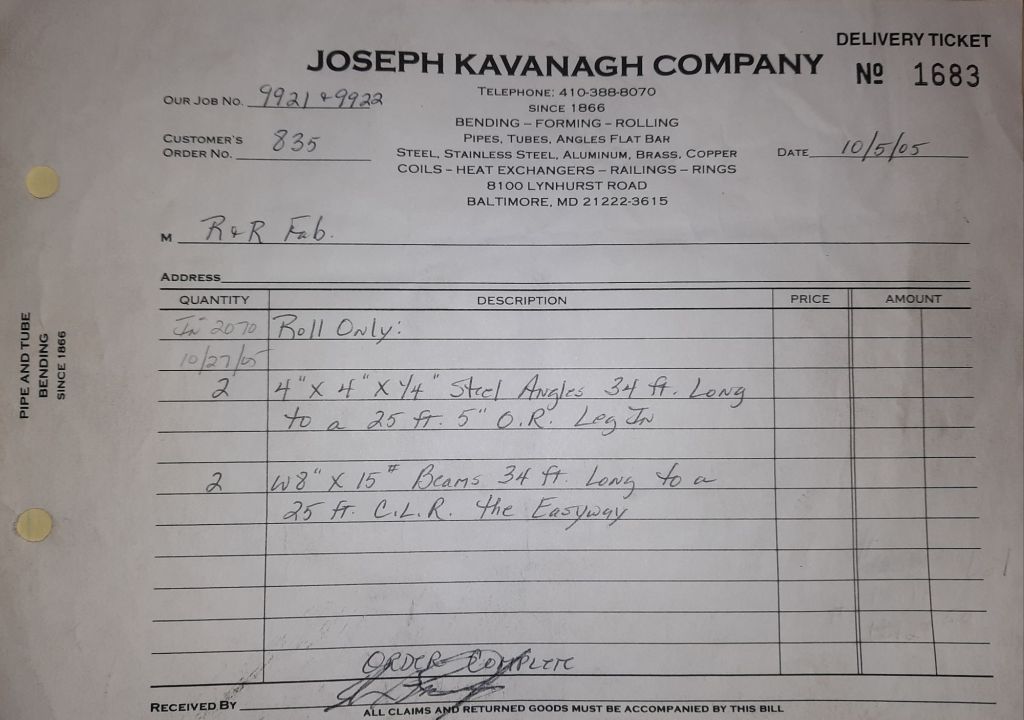 DELIVERY TICKET
JOSEPH KAVANAGH COMPANY
Nº 1683
OUR JOB NO. 9921 & 9922
TELEPHONE: 410-388-8070
SINCE 1866
BENDING – FORMING – ROLLING
CUSTOMER'S ORDER NO. 835
PIPES, TUBES, ANGLES FLAT BAR
STEEL, STAINLESS STEEL, ALUMINUM, BRASS, COPPER
DATE 10/5/05
COILS – HEAT EXCHANGERS – RAILINGS – RINGS
8100 LYNHURST ROAD
BALTIMORE, MD 21222-3615
M R & R Fab.
ADDRESS
QUANTITY DESCRIPTION PRICE AMOUNT
In 2070 Roll Only:
10/27/05
2 4" X 4" X 1/4" Steel Angles 34 ft. Long
to a 25 ft. 5" O.R. Leg In
2 W8" X 15# Beams 34 ft. Long to a
25 ft. C.L.R. the Easyway
ORDER COMPLETE
RECEIVED BY
ALL CLAIMS AND RETURNED GOODS MUST BE ACCOMPANIED BY THIS BILL
PIPE AND TUBE
BENDING
SINCE 1866